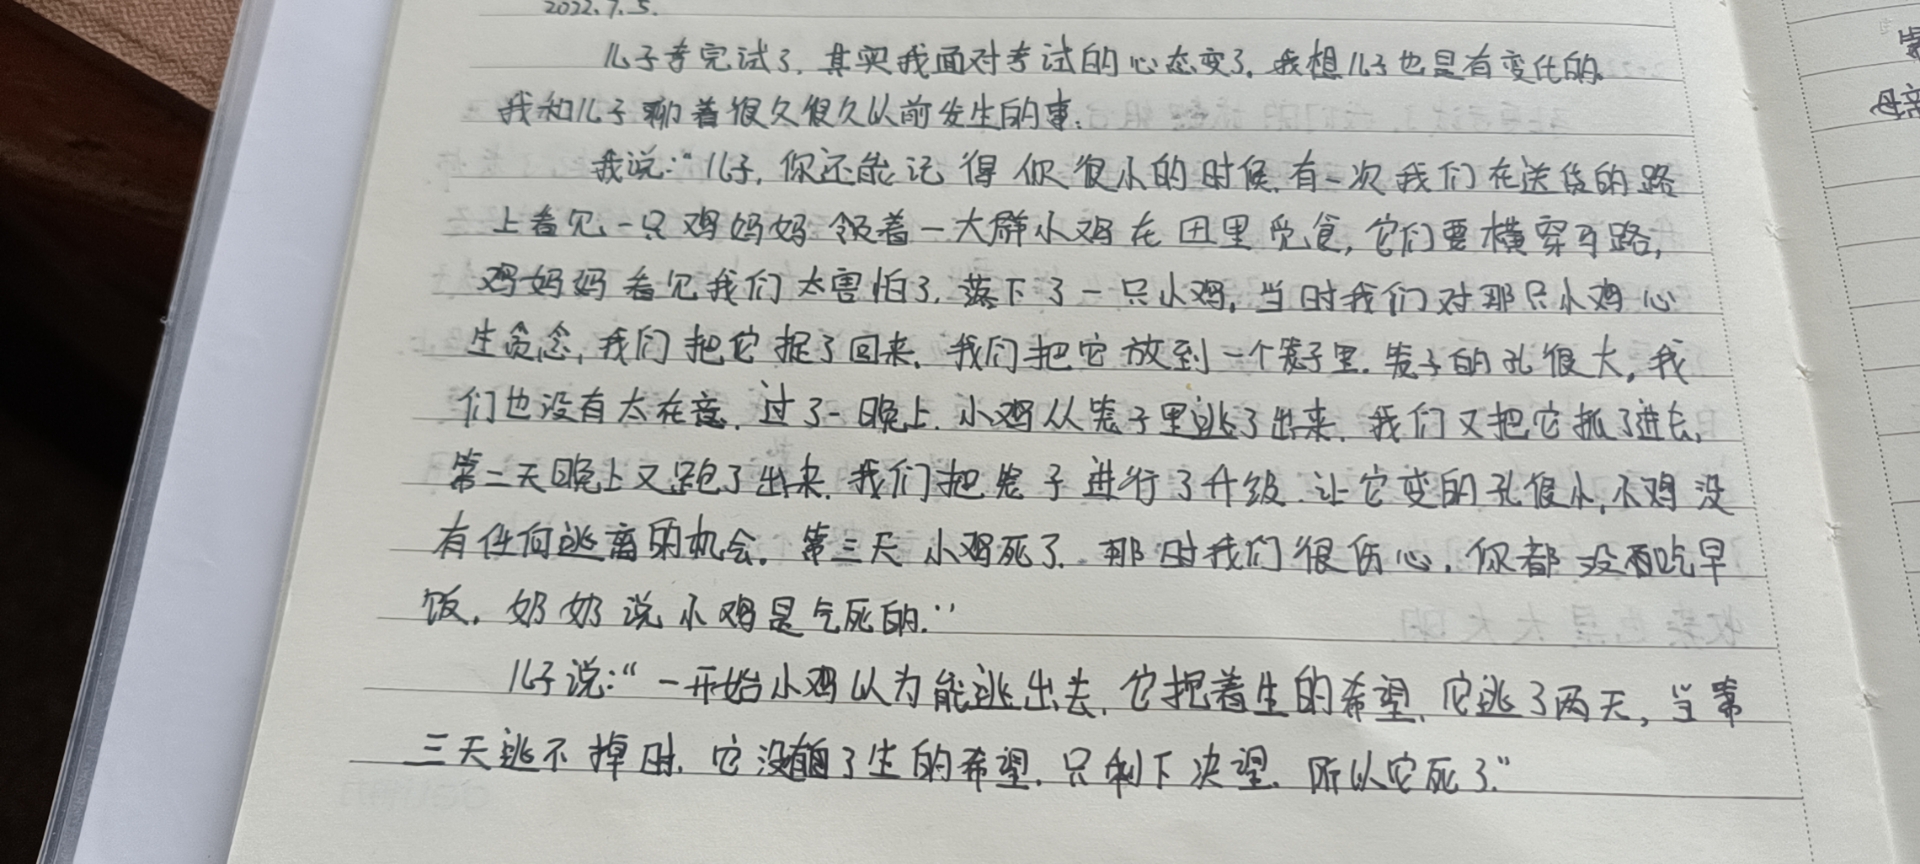 2022.7.5.
儿子考完试了,其实我面对考试的心态变了,我想儿子也是有变化的。
我和儿子聊着很久很久以前发生的事。
我说:“儿子,你还能记得你很小的时候,有一次我们在送货的路
上看见一只鸡妈妈领着一大群小鸡在田里觅食,它们要横穿马路,
鸡妈妈看见我们太害怕了,落下了一只小鸡,当时我们对那只小鸡心
生贪念,我们把它捉了回来,我们把它放到一个笼子里,笼子的孔很大,我
们也没有太在意,过了一晚上,小鸡从笼子里逃了出来,我们又把它抓了进去,
第二天晚上又跑了出来,我们把笼子进行了升级,让它变的孔很小,小鸡没
有任何逃离的机会。第三天小鸡死了,那时我们很伤心,你都没有吃早
饭,奶奶说小鸡是气死的.”
儿子说:“一开始小鸡以为能逃出去,它抱着生的希望,它逃了两天,当第
三天逃不掉时,它没有了生的希望,只剩下决望,所以它死了.”
母亲